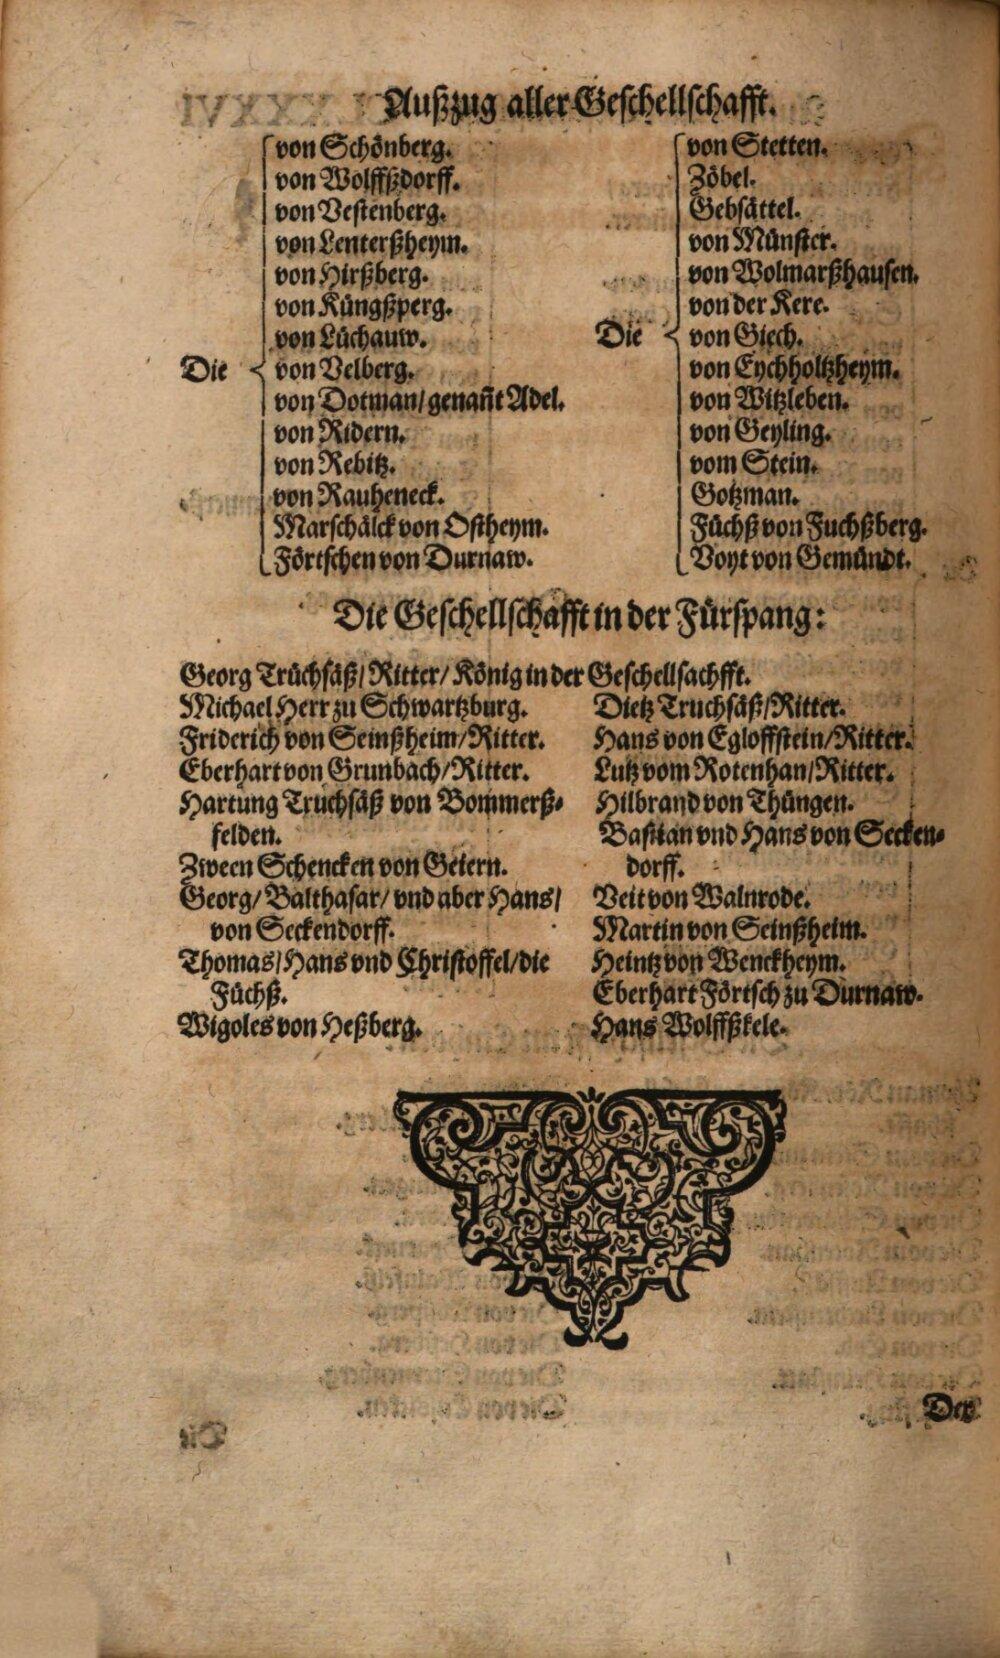 Außzug aller Geschellschafft.
Die
von Schönberg.
von Wolffßdorff.
von Vestenberg.
von Lenterßheym.
von Hirßberg.
von Küngßperg.
von Lüchauw.
von Velberg.
von Dotman/ genañt Adel.
von Ridern.
von Rebitz.
von Rauheneck.
Marschälck von Ostheym.
Förtschen von Durnaw.
Die
von Stetten.
Zöbel.
Gebsättel.
von Münster.
von Wolmarßhausen.
von der Kere.
von Giech.
von Eychholtzheym.
von Witzleben.
von Geyling.
vom Stein.
Gotzman.
Füchß von Fuchßberg.
Voyt von Gemündt.
Die Geschellschafft in der Fürspang:
Georg Trüchsäß/ Ritter/ König in der Geschellsachfft.
Michael Herr zu Schwartzburg.
Friderich von Seinßheim/ Ritter.
Eberhart von Grunbach/ Ritter.
Hartung Truchsäß von Bommerß-
felden.
Zween Schencken von Geiern.
Georg/ Balthasar/ vnd aber Hans/
von Seckendorff.
Thomas/ Hans vnd Christoffel/ die
Füchß.
Wigoles von Heßberg.
Dietz Truchsäß/ Ritter.
Hans von Egloffstein/ Ritter.
Lutz vom Rotenhan/ Ritter.
Hilbrand von Thüngen.
Bastian vnd Hans von Secken-
dorff.
Veit von Walnrode.
Martin von Seinßheim.
Heintz von Wenckheym.
Eberhart Förtsch zu Durnaw.
Hans Wolffßkele.
Der